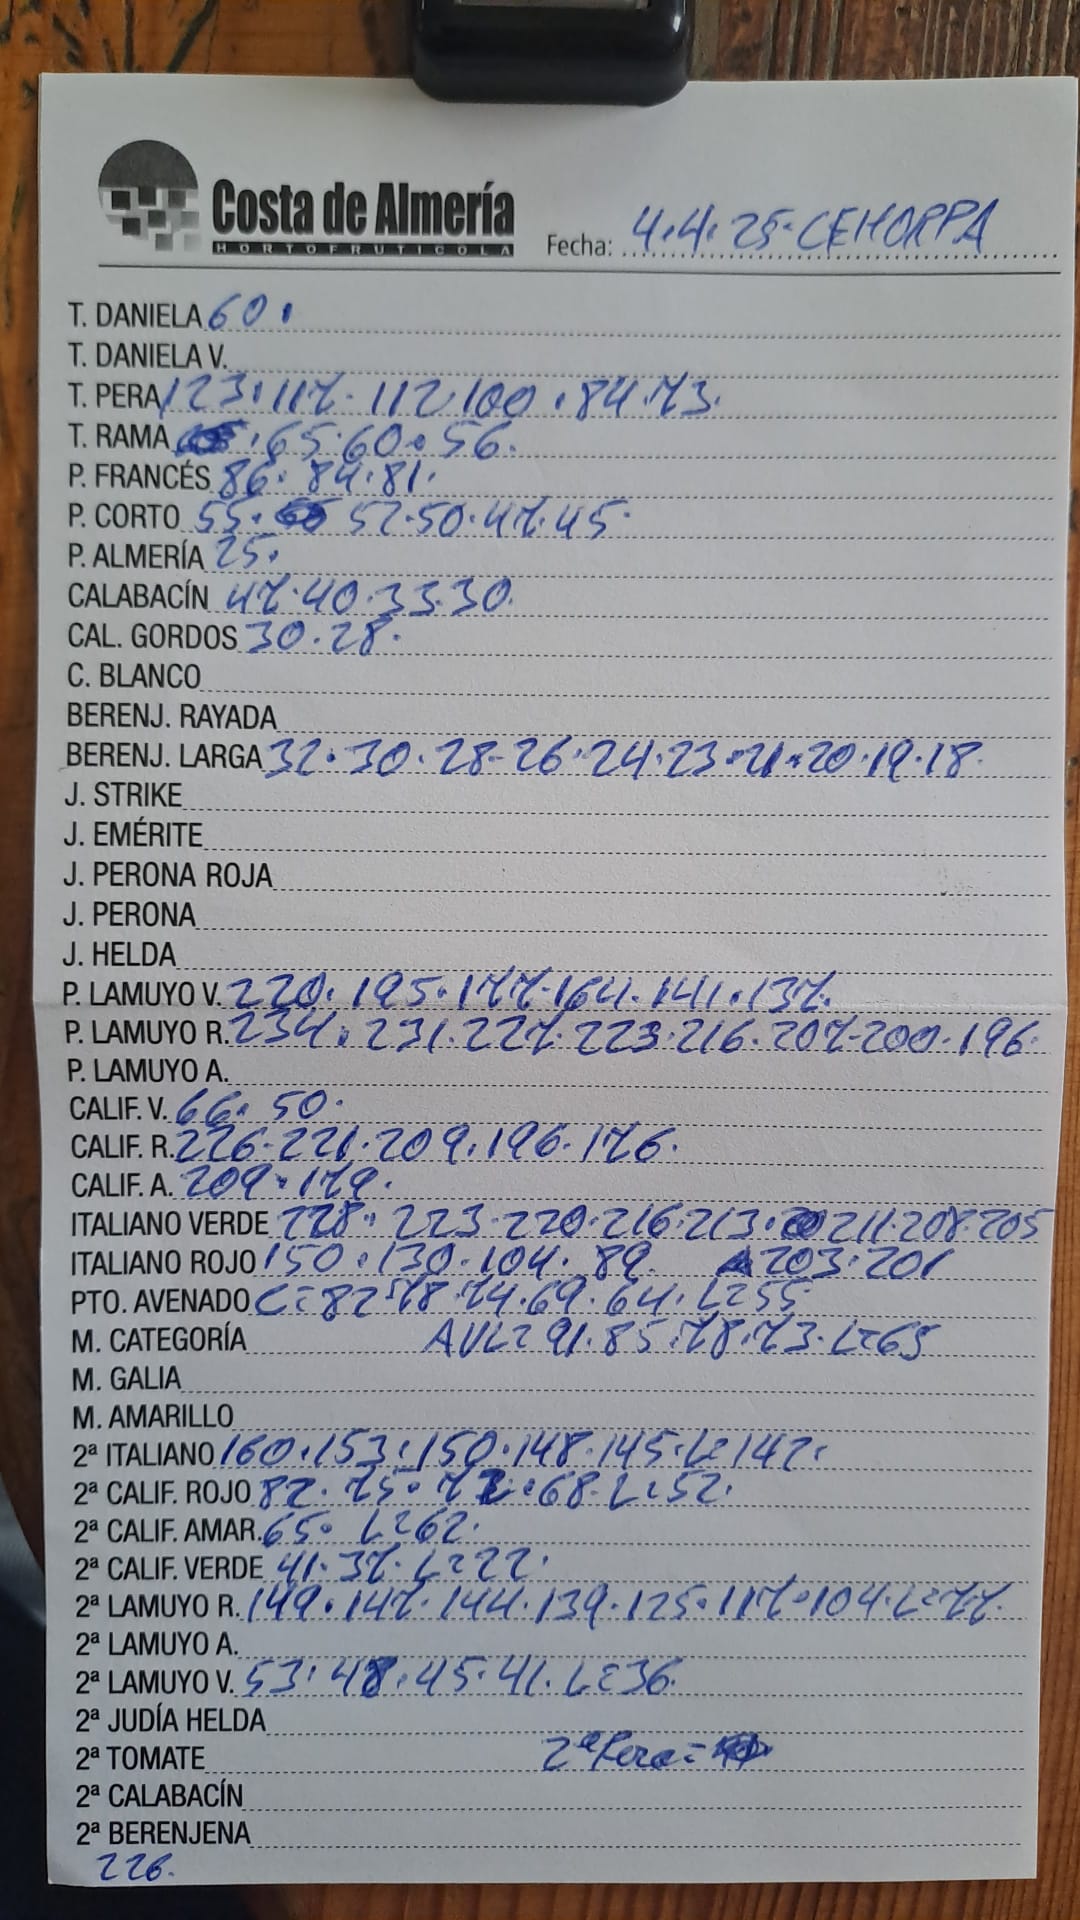 Costa de Almería
HORTOFRUTICOLA
Fecha: 4.4.25-CEHORPA
T. DANIELA 60.
T. DANIELA V.
T. PERA 123.117.112.100.84.73.
T. RAMA .65.60.56.
P. FRANCÉS 86.84.81.
P. CORTO 55. 52.50.47.45.
P. ALMERÍA 25.
CALABACÍN 47.40.33.30.
CAL. GORDOS 30.28.
C. BLANCO
BERENJ. RAYADA
BERENJ. LARGA 32.30.28-26.24.23.21.20.19.18.
J. STRIKE
J. EMÉRITE
J. PERONA ROJA
J. PERONA
J. HELDA
P. LAMUYO V. 220.195.177.164.141.137.
P. LAMUYO R. 234.231.227.223.216.207-200.196.
P. LAMUYO A.
CALIF. V. 66.50.
CALIF. R. 226-221.209.196.176.
CALIF. A. 209.179.
ITALIANO VERDE 228.223.220.216.213. 211.208.205
ITALIANO ROJO 150.130.104.89. 203.201
PTO. AVENADO C=82.78.74.69.64.L=55
M. CATEGORÍA AVL=91.85.78.73.L=65
M. GALIA
M. AMARILLO
2ª ITALIANO 160.153.150.148.145.L=142.
2ª CALIF. ROJO 82.75.72.68.L=52.
2ª CALIF. AMAR. 65. L=62.
2ª CALIF. VERDE 41.37.L=22.
2ª LAMUYO R. 149.147.144.139.125.117.104.L=77.
2ª LAMUYO A.
2ª LAMUYO V. 53.48.45.41.L=36.
2ª JUDÍA HELDA
2ª TOMATE 2ª Pera=
2ª CALABACÍN
2ª BERENJENA
226.